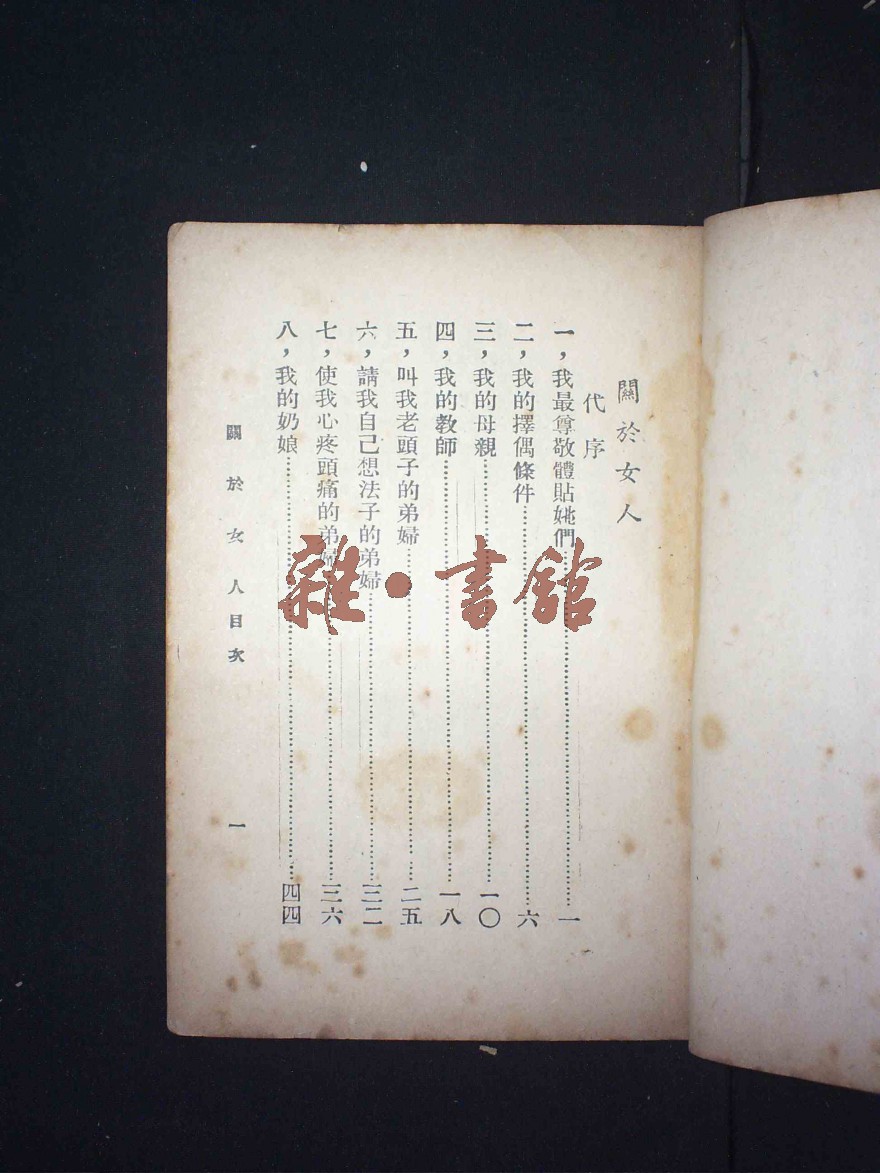 關於女人
代序
一，我最尊敬體貼她們……一
二，我的擇偶條件……六
三，我的母親……一〇
四，我的教師……一八
五，叫我老頭子的弟婦……二五
六，請我自己想法子的弟婦……三二
七，使我心疼頭痛的弟婦……三六
八，我的奶娘……四四
關於女人目次
一
雜·書館